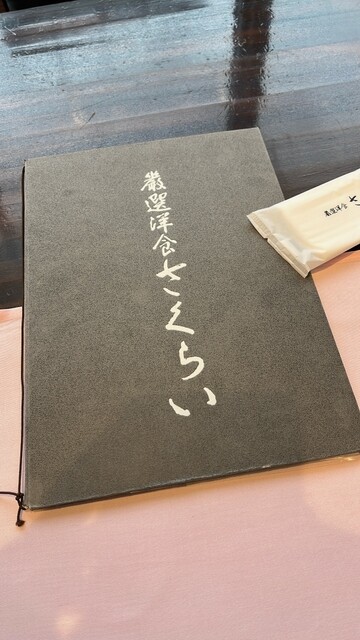 厳選洋食さくらい
厳選洋食 さ